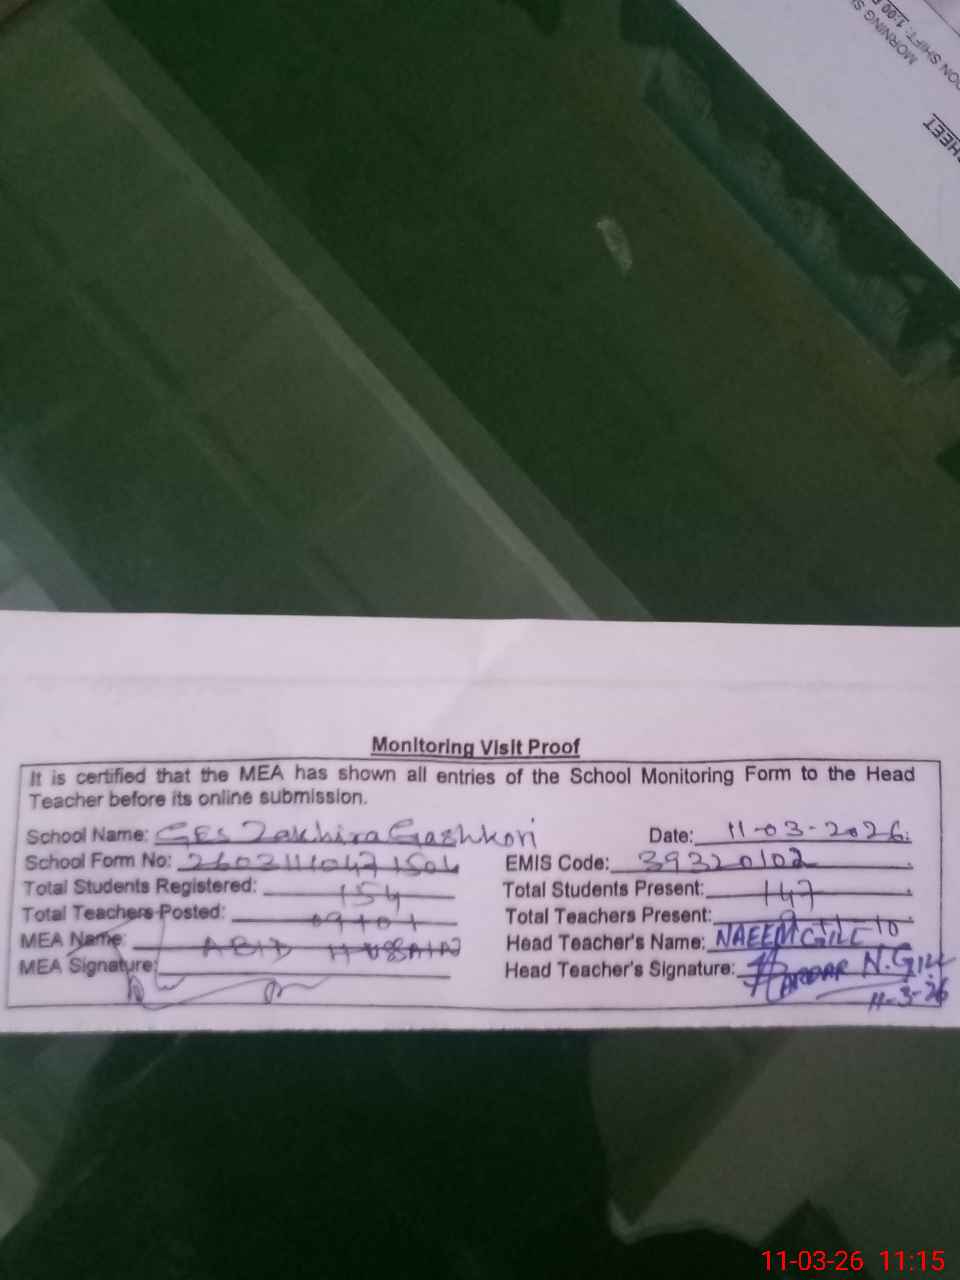 MORNING
ON SHIFT: 1:00
HEET
Monitoring Visit Proof
It is certified that the MEA has shown all entries of the School Monitoring Form to the Head
Teacher before its online submission.
School Name: GES Zakhira Gashkori Date: 11-03-2026.
School Form No: EMIS Code: 39320102
Total Students Registered: 154 Total Students Present: 147
Total Teachers Posted: 09+01 Total Teachers Present:
MEA Name: ABID HUSSAIN Head Teacher's Name: NAEEM GILL
MEA Signature: Head Teacher's Signature: N. GILL
11-3-26
11-03-26 11:15